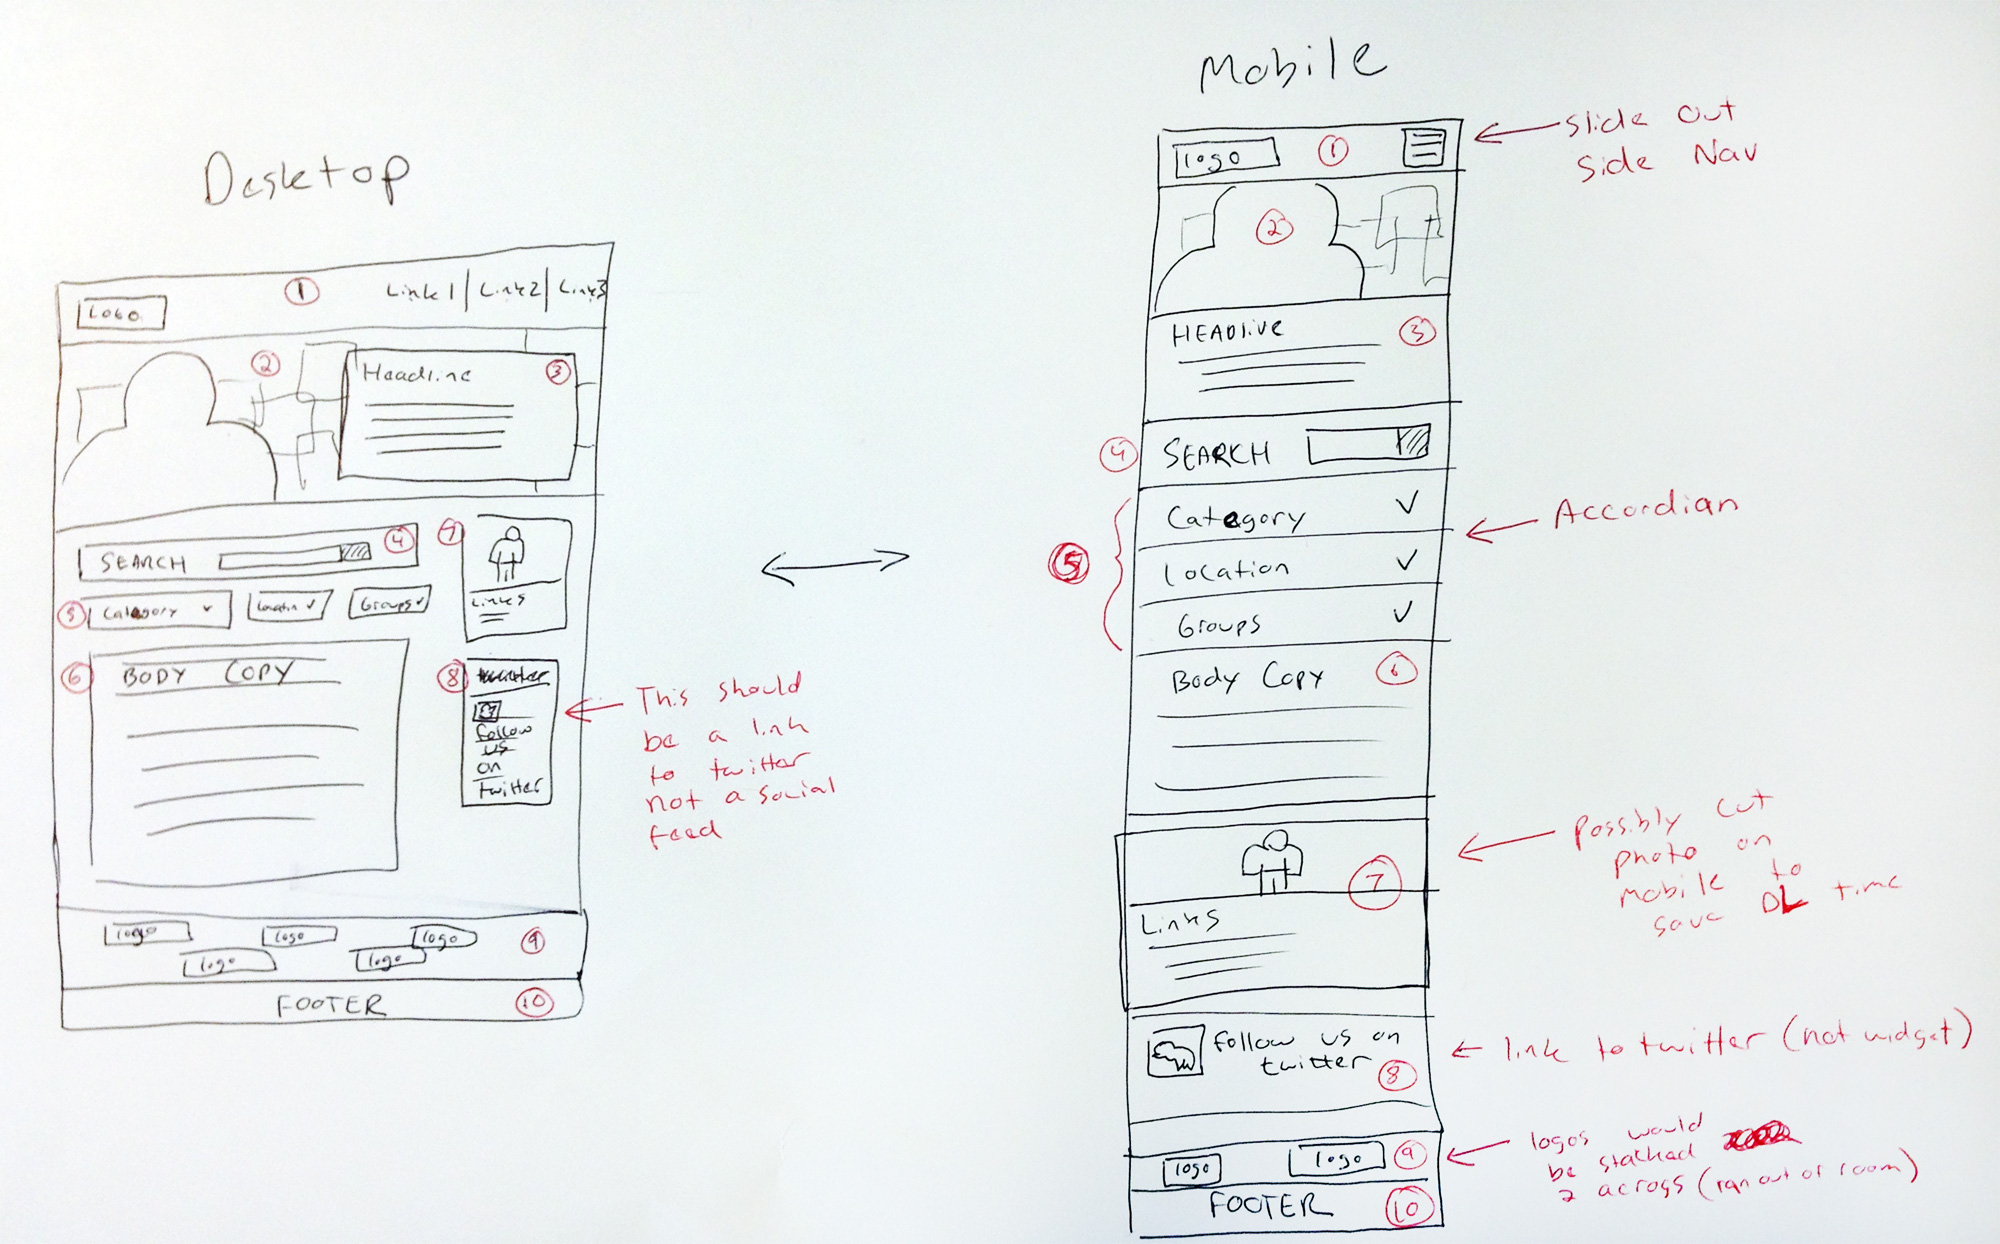 Desktop
Logo
1
Link1 | Link2 | Link3
2
Headline
3
SEARCH
4
5
Category
Groups
6
BODY COPY
7
Links
8
follow
us
on
twitter
This should
be a link
to twitter
not a social
feed
logo
logo
logo
logo
logo
9
FOOTER
10
Mobile
logo
1
Slide out
Side Nav
2
HEADLINE
3
4
SEARCH
5
Category
Location
Groups
Accordian
Body Copy
6
7
Links
Possibly cut
photo on
mobile to
save DL time
follow us on
twitter
8
link to twitter (not widget)
logo
logo
9
logos would
be stacked
2 across (ran out of room)
FOOTER
10